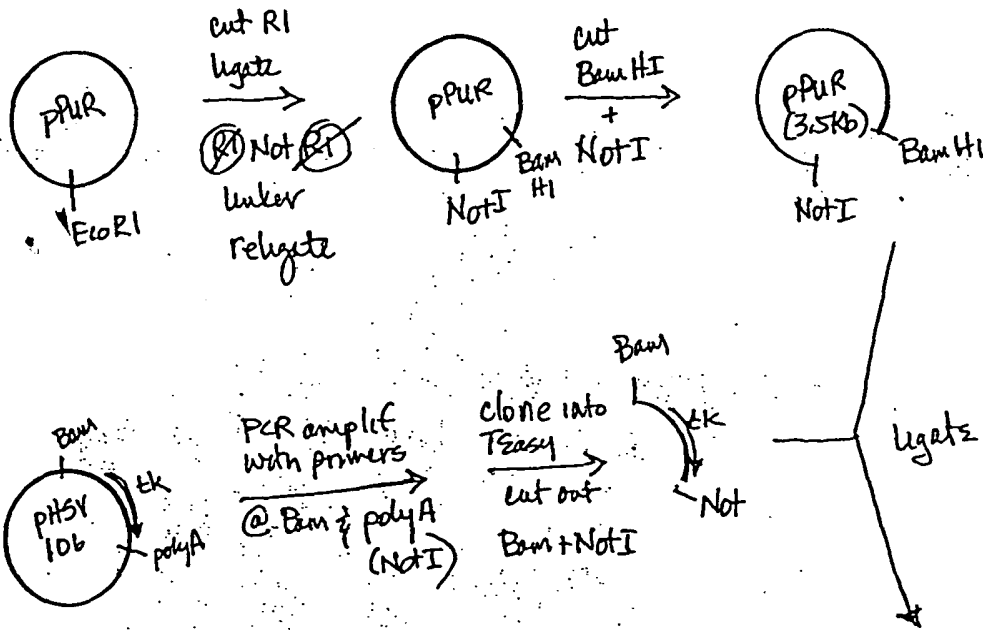 pPUR
EcoR1
cut R1
ligate
R1 Not R1
linker
religate
pPUR
Bam
H1
NotI
cut
Bam HI
+
NotI
pPUR
(3.5Kb)
Bam H1
NotI
Bam
tk
pHSV
106
polyA
PCR amplif
with primers
@ Bam & polyA
(NotI)
clone into
TEasy
cut out
Bam + NotI
Bam
tk
Not
ligate